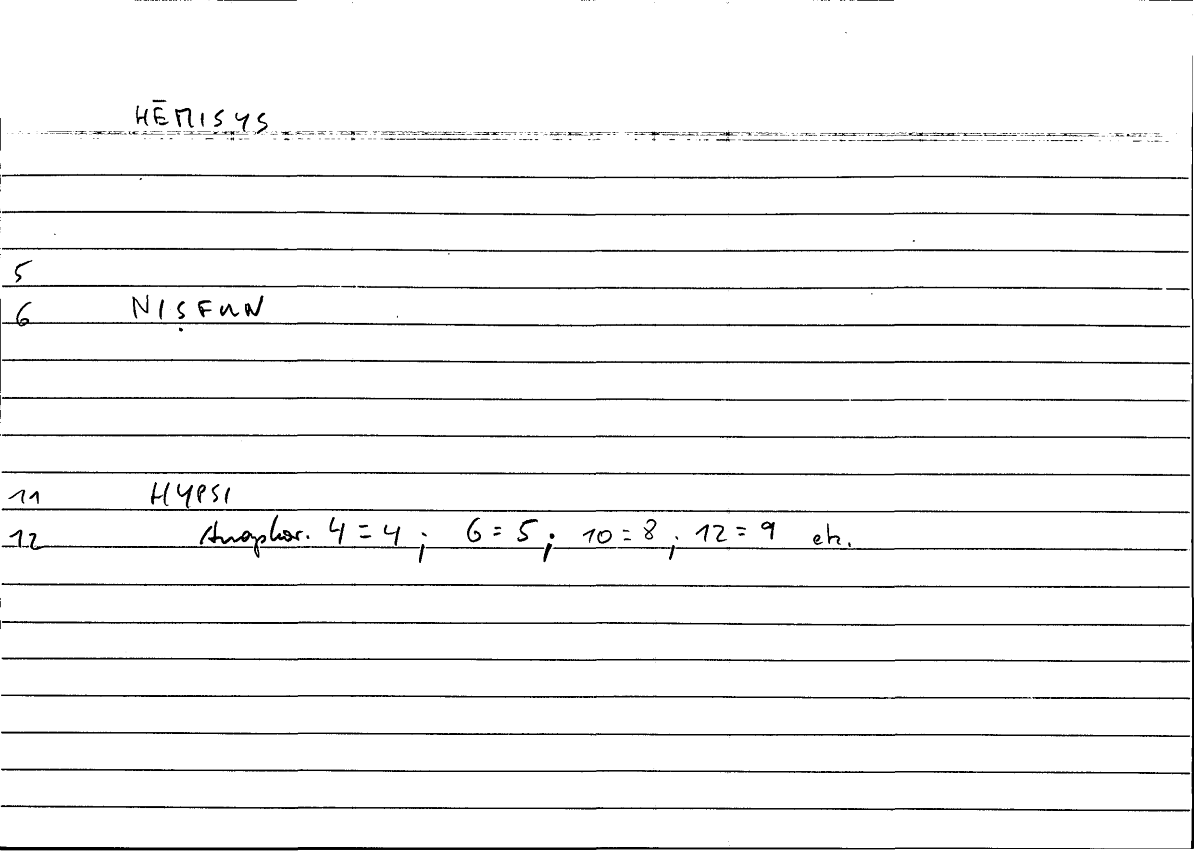 HĒMISYS
5
6 NIṢFUN
11 HYPSI
12 Anaphor. 4 = 4 ; 6 = 5 ; 10 = 8 ; 12 = 9 etc.